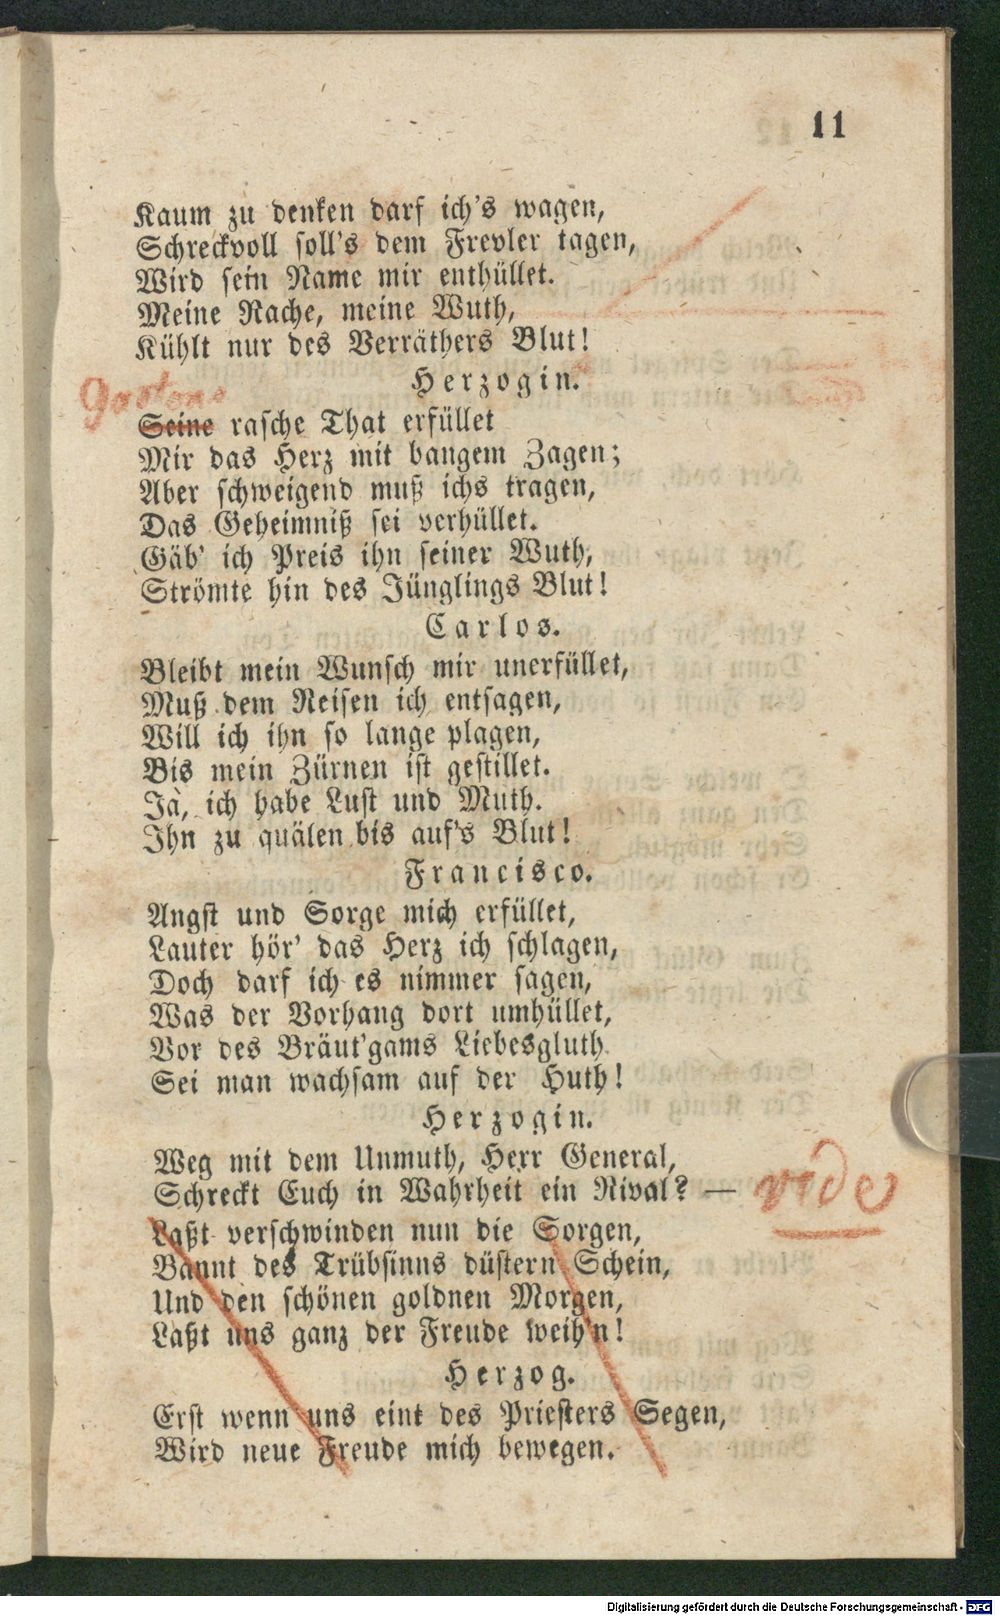 11
Kaum zu denken darf ich's wagen,
Schreckvoll soll's dem Frevler tagen,
Wird sein Name mir enthüllet.
Meine Rache, meine Wuth,
Kühlt nur des Verräthers Blut!
Herzogin.
Gastons
Seine rasche That erfüllet
Mir das Herz mit bangem Zagen;
Aber schweigend muß ichs tragen,
Das Geheimniß sei verhüllet.
Gäb' ich Preis ihn seiner Wuth,
Strömte hin des Jünglings Blut!
Carlos.
Bleibt mein Wunsch mir unerfüllet,
Muß dem Reisen ich entsagen,
Will ich ihn so lange plagen,
Bis mein Zürnen ist gestillet.
Ja, ich habe Lust und Muth.
Ihn zu quälen bis auf's Blut!
Francisco.
Angst und Sorge mich erfüllet,
Lauter hör' das Herz ich schlagen,
Doch darf ich es nimmer sagen,
Was der Vorhang dort umhüllet,
Vor des Bräut'gams Liebesgluth
Sei man wachsam auf der Huth!
Herzogin.
Weg mit dem Unmuth, Herr General,
Schreckt Euch in Wahrheit ein Rival? — vide
Laßt verschwinden nun die Sorgen,
Bannt des Trübsinns düstern Schein,
Und den schönen goldnen Morgen,
Laßt uns ganz der Freude weih'n!
Herzog.
Erst wenn uns eint des Priesters Segen,
Wird neue Freude mich bewegen.
Digitalisierung gefördert durch die Deutsche Forschungsgemeinschaft - DFG